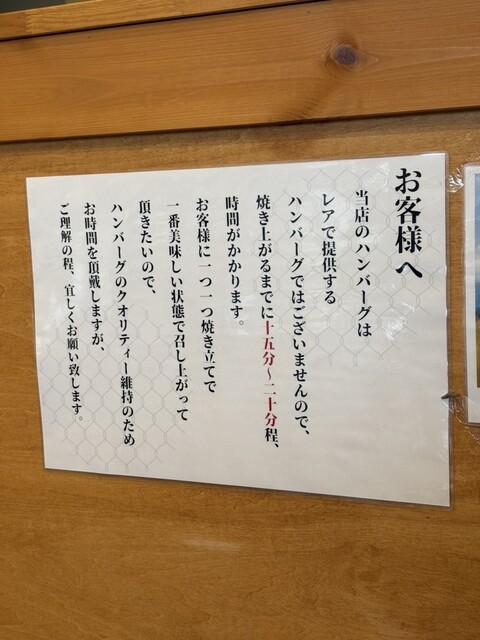 お客様へ
当店のハンバーグは
レアで提供する
ハンバーグではございませんので、
焼き上がるまでに十五分〜二十分程、
時間がかかります。
お客様に一つ一つ焼き立てで
一番美味しい状態で召し上がって
頂きたいので、
ハンバーグのクオリティー維持のため
お時間を頂戴しますが、
ご理解の程、宜しくお願い致します。